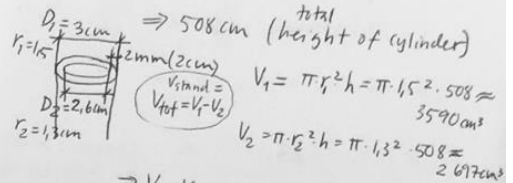 D₁ = 3cm ⇒ 508 cm total (height of cylinder)
r₁ = 1,5
2mm (2cm)
V stand =
V tot = V₁ - V₂
D₂ = 2,6cm
r₂ = 1,3cm
V₁ = π · r₁² · h = π · 1,5² · 508 ≈
3590 cm³
V₂ = π · r₂² · h = π · 1,3² · 508 ≈
2697cm³